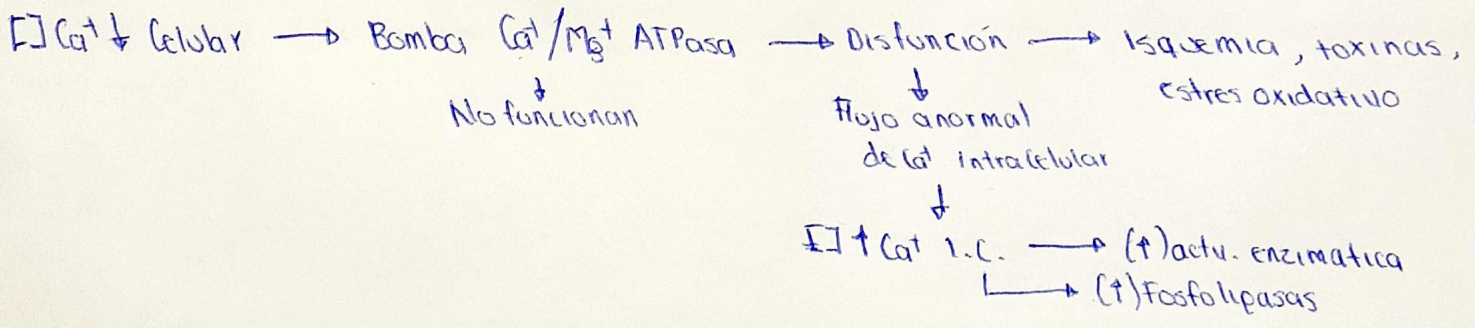 [] Ca⁺ ↓ Celular → Bomba Ca⁺/Mg⁺ ATPasa → Disfunción → Isquemia, toxinas,
estres oxidativo
↓ ↓
No funcionan Flujo anormal
de Ca⁺ intracelular
↓
[] ↑ Ca⁺ I.C. → (↑) activ. enzimatica
→ (↑) Fosfolipasas